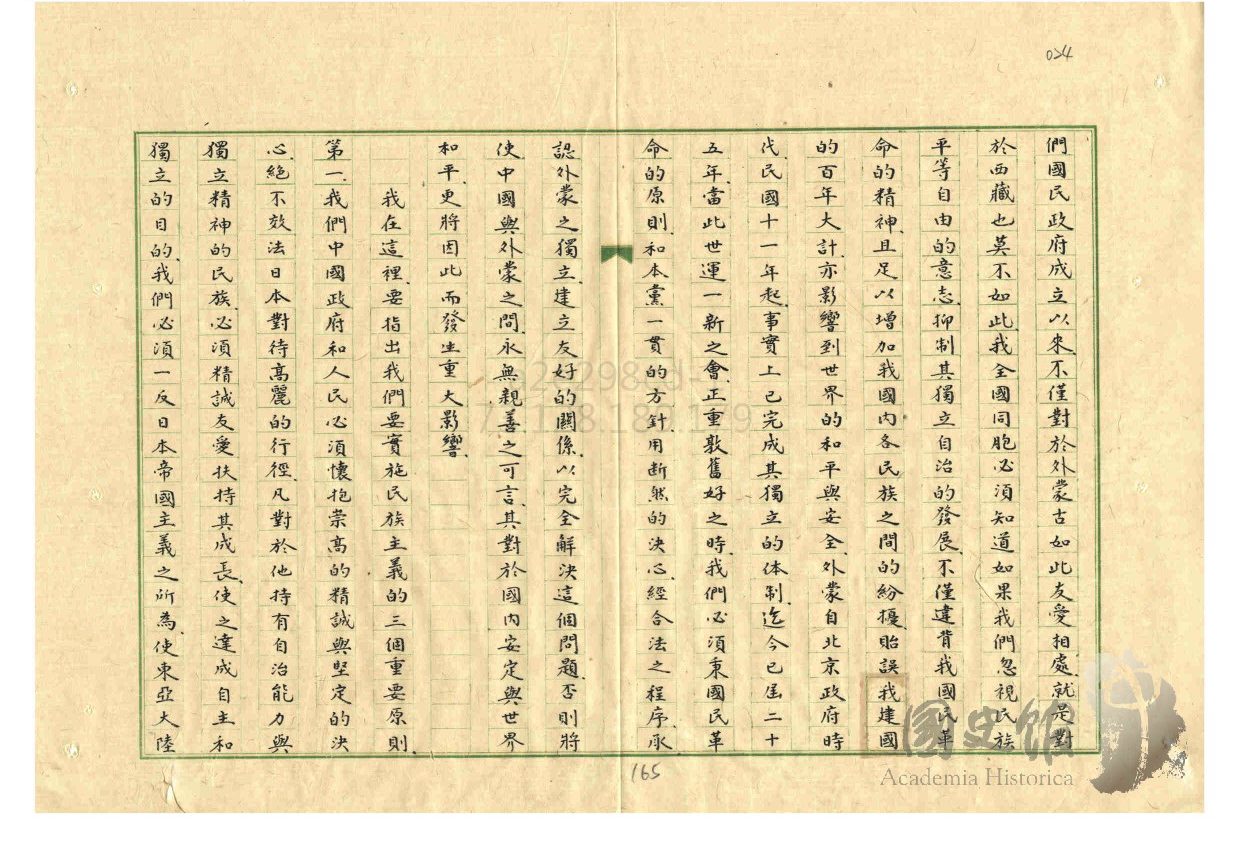 024
們國民政府成立以來、不僅對於外蒙古如此友愛相處、就是對
於西藏也莫不如此、我全國同胞必須知道如果我們忽視民族
平等自由的意志、抑制其獨立自治的發展、不僅違背我國民革
命的精神、且足以增加我國內各民族之間的紛擾、貽誤我建國
的百年大計、亦影響到世界的和平與安全、外蒙自北京政府時
代、民國十一年起、事實上已完成其獨立的体制、迄今已屆二十
五年、當此世運一新之會、正重敦舊好之時、我們必須秉國民革
命的原則、和本黨一貫的方針、用斷然的決心、經合法之程序、承
認外蒙之獨立、建立友好的關係、以完全解決這個問題、否則將
使中國與外蒙之間、永無親善之可言、其對於國內安定與世界
和平、更將因此而發生重大影響、
我在這裡、要指出我們要實施民族主義的三個重要原則、
第一、我們中國政府和人民必須懷抱崇高的精誠與堅定的決
心、絕不效法日本對待高麗的行徑、凡對於他持有自治能力與
獨立精神的民族、必須精誠友愛扶持其成長、使之達成自主和
獨立的目的、我們必須一反日本帝國主義之所為、使東亞大陸
165
國史館
Academia Historica